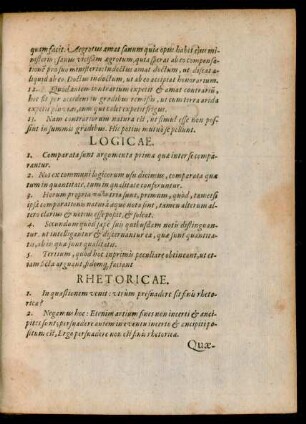 quam facit. Aegrotus amat sanum quia opus habet ejus mi-
nisterio: sanus vicissim aegrotum, quia sperat ab eo compensa-
tionem pro suo ministerio: indoctus amat doctum, ut discat a-
liquid ab eo. Doctus indoctum, ut ab eo accipiat honorarium.
12. Quod autem contrarium expetit & amat contrarium,
hoc fit per accidens in gradibus remissis, ut cum terra arida
expetit pluviam, cum qua aliàs expetit
13. Nam contrariorum natura est, ne simul esse non pos-
sint in summis gradibus. Hic potius mutuò se pellunt.
LOGICAE.
1. Comparata sunt argumenta prima quae inter se compa-
rantur.
2. Not ex communi logicorum usu dicimus, comparata quae
tum in quantitate, tum in qualitate conferuntur.
3. Horum propria natura sunt, premium, quòd, tametsi
ipsa comparationis natura aequè nota sint, tamen alterum al-
tero clarius & notius esse possit, & soleat.
4. Secundum quod suis quibusdam notis distinguan-
tur ut intelligantur & discernantur ea, quae sunt quantita-
tis, ab iis quae sunt qualitatis.
5. Tertium, quod hoc inprimis peculiare obtineant, ut et-
iam ficta arguant, fidemque faciant
RHETORICAE.
1. In quaestionem venit: utrùm persuadere sit finis rheto-
ricae?
2. Negamus hoc: Etenim artium fines non incerti & anci-
pites sunt; persuadere autem in eventu incerto & ancipiti po-
situm est, Ergo persuadere non est finis rhetoricae.
Quae-